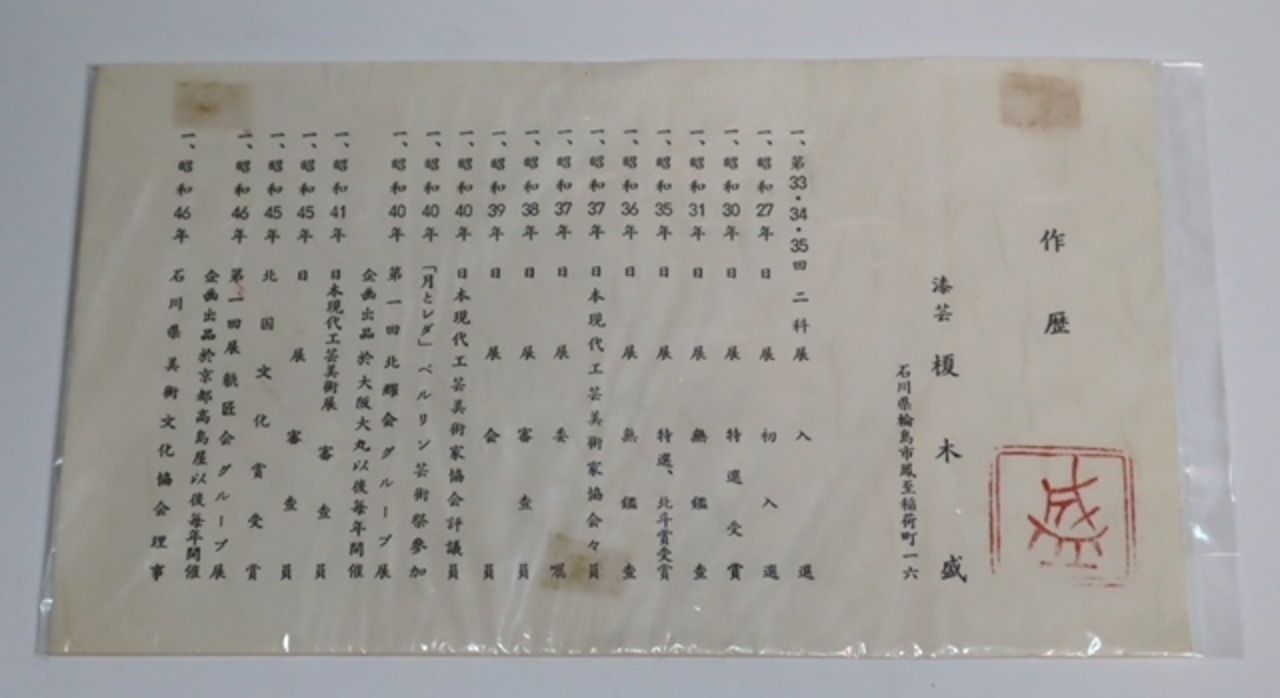 作歴
漆芸 榎木盛
石川県輪島市鳳至稲荷町一六
一、第33・34・35回 二科展 入選
一、昭和27年 日展 初入選
一、昭和30年 日展 特選受賞
一、昭和31年 日展 無鑑査
一、昭和35年 日展 特選、北斗賞受賞
一、昭和36年 日展 無鑑査
一、昭和37年 日本現代工芸美術家協会々員
一、昭和37年 日展 委嘱
一、昭和38年 日展 審査員
一、昭和39年 日展 会員
一、昭和40年 日本現代工芸美術家協会評議員
一、昭和40年 「月とレダ」ベルリン芸術祭参加
一、昭和40年 第一回北輝会グループ展
企画出品於大阪大丸以後毎年開催
一、昭和41年 日本現代工芸美術展 審査員
一、昭和45年 日展 審査員
一、昭和45年 北国文化賞受賞
一、昭和46年 第一回展 匠会グループ展
企画出品於京都高島屋以後毎年開催
一、昭和46年 石川県美術文化協会理事
盛